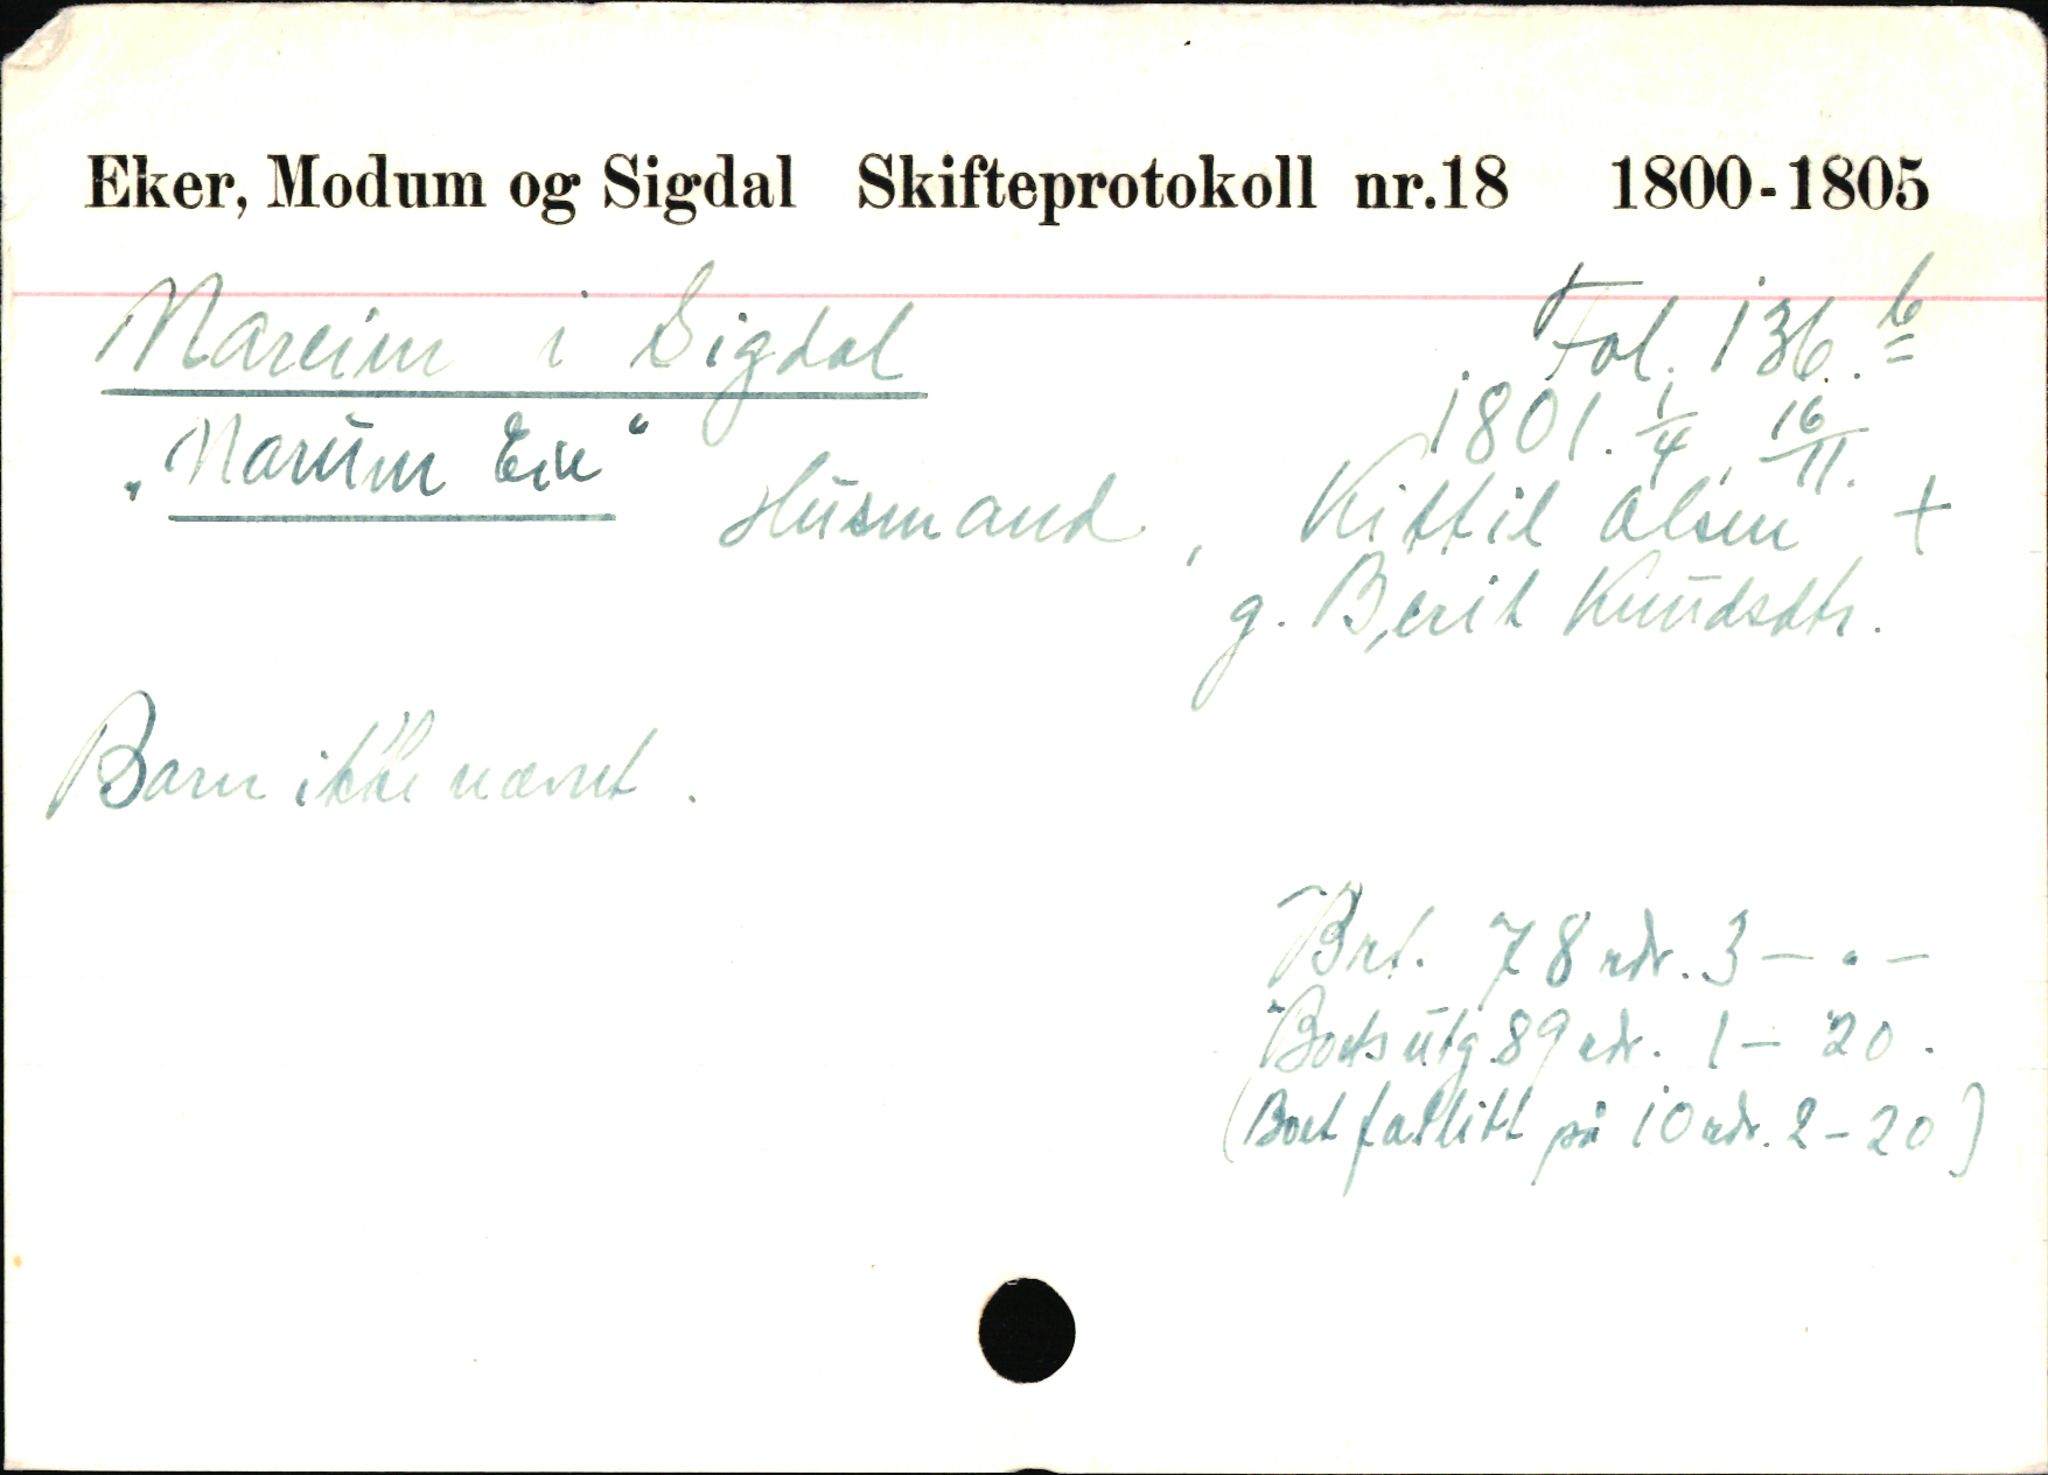 Eker, Modum og Sigdal Skifteprotokoll nr.18 1800-1805
Nareim i Sigdal Fol. 136.b
1801. 1/4, 16/11.
„Narum Eie“ Husmand, Kittil Olsen +
g. Berit Knudsdtr.
Barn ikke nævnt.
Brt. 78 rdr. 3 — " —
Boets utg. 89 rdr. 1 — 20.
(Boet fallitt på 10 rdr. 2 – 20)